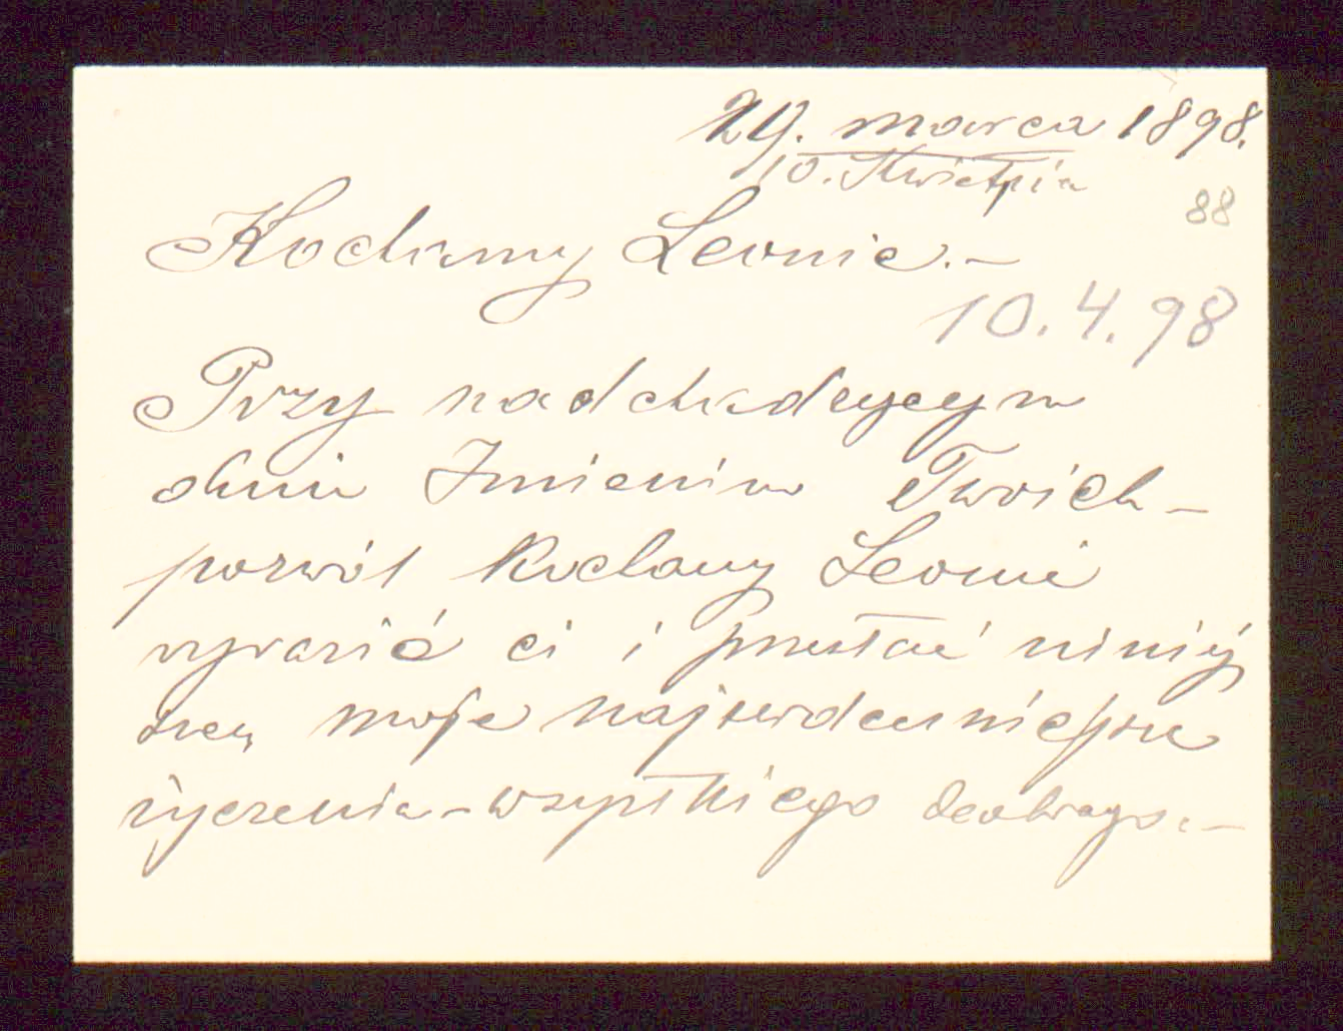 29. marca 1898.
10. Kwietnia
88
Kochany Leonie.-
10.4.98
Przy nadchodzącym
dniu Imienin Twoich -
pozwól Kochany Leonie
wyrazić ci i przesłać niniej
szeą moje najserdeczniejsze
życzenia - wszystkiego dobrego. -